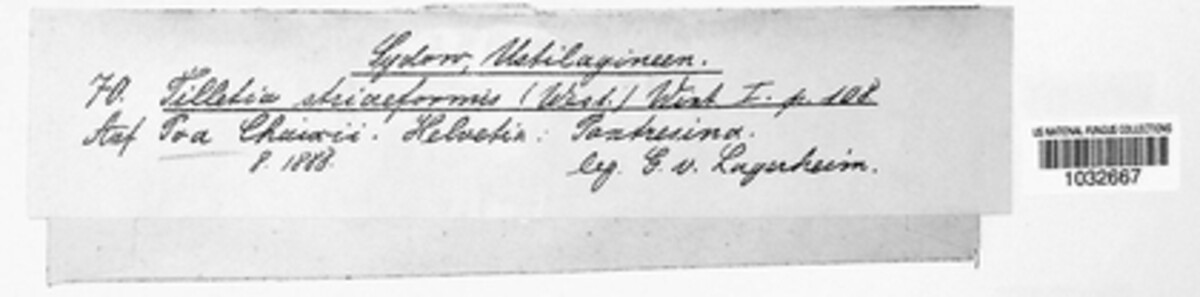 Sydow, Ustilagineen.
70. Tilletia striaeformis (West.) Wint I. p. 108
Auf Poa Chaixii. Helvetia: Pontresina.
8. 1888. leg. G. v. Lagerheim.
US NATIONAL FUNGUS COLLECTIONS
1032667